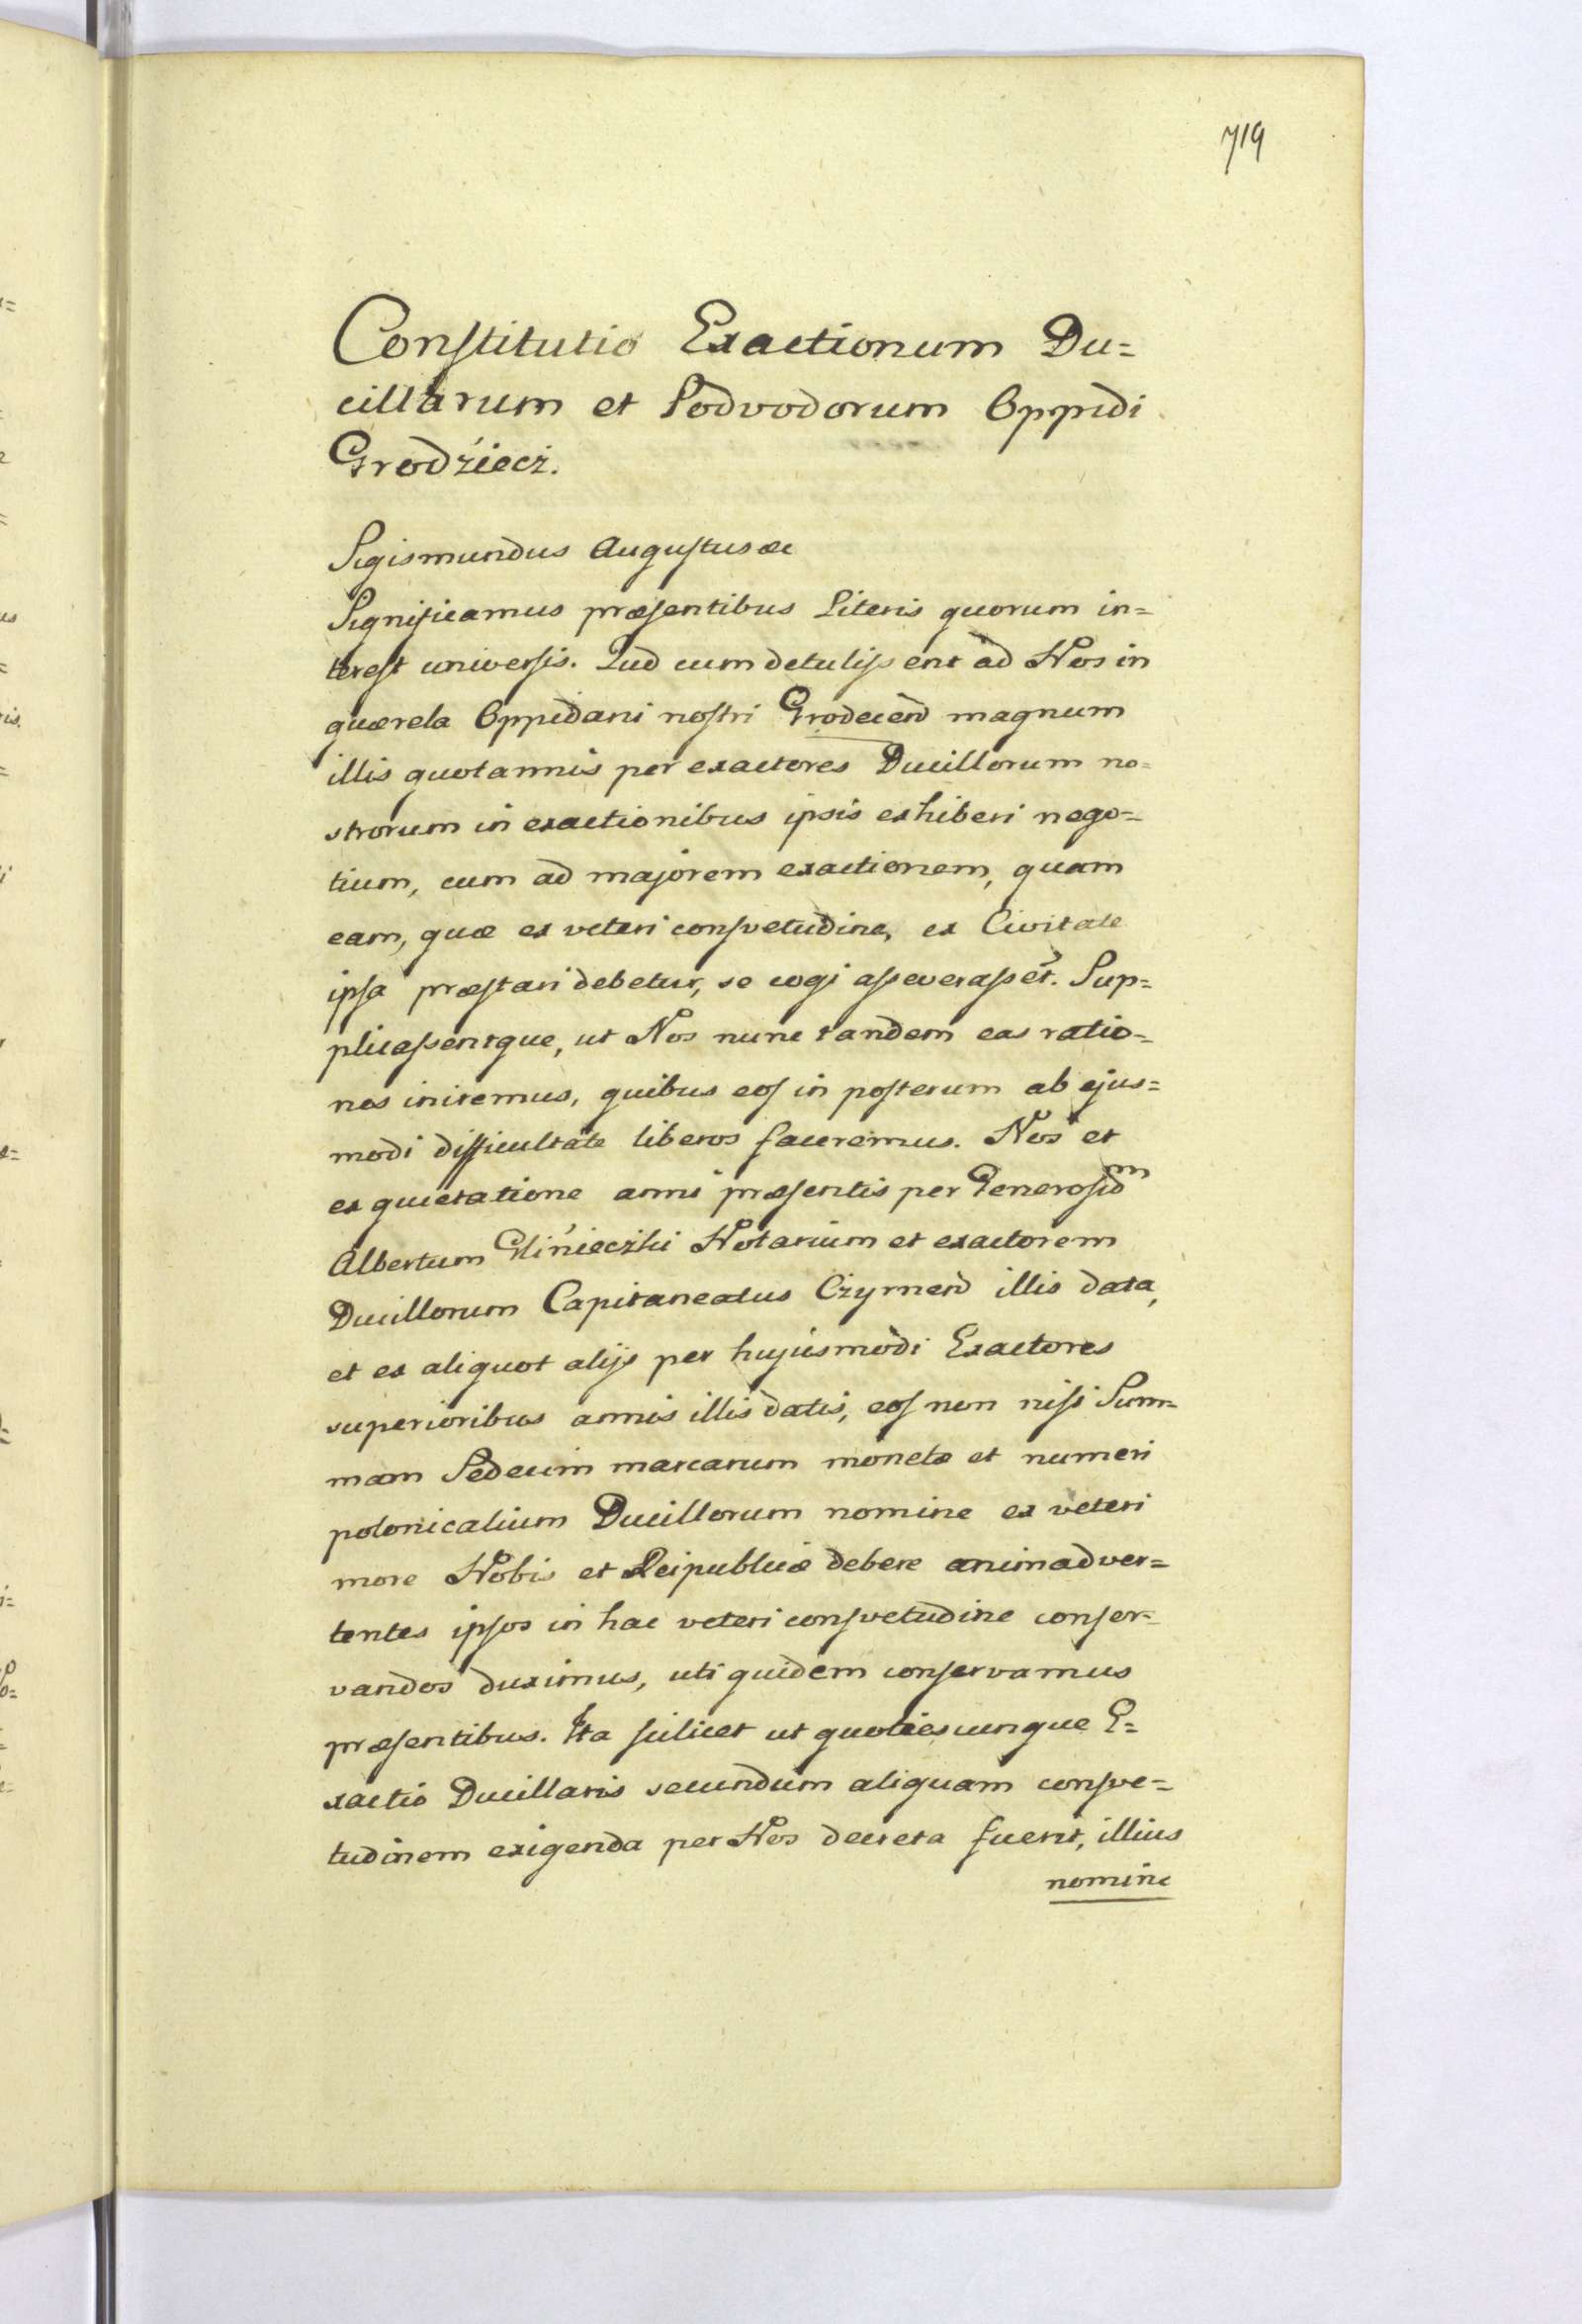 719
Constitutio Exactionum Du=
cillarum et Podvodorum Oppidi
Grodziecz.
Sigismundus Augustus &c
Significamus præsentibus Literis quorum in=
terest universis. Qud cum detulissent ad Nos in
quærela Oppidani nostri Grodecen magnum
illis quotannis per exactores Ducillorum no=
strorum in exactionibus ipsis exhiberi nego=
tium, cum ad majorem exactionem, quam
eam, quæ ex veteri consvetudine, ex Civitate
ipsa præstari debetur, se cogi asseverassēt. Sup=
plicassentque, ut Nos nunc tandem eas ratio=
nes iniremus, quibus eos in posterum ab ejus=
modi difficultate liberos faceremus. Nos et
ex quietatione anni præsentis per Generosum
Albertum Glinieczki Notarium et exactorem
Ducillorum Capitaneatus Czyrnen illis data,
et ex aliquot alijs per hujusmodi Exactores
superioribus annis illis datis, eos non nisi Sum=
mam Sedecim marcarum monetæ et numeri
polonicalium Ducillorum nomine ex veteri
more Nobis et Reipublicæ debere animadver=
tentes ipsos in hac veteri consvetudine conser=
vandos duximus, uti quidem conservamus
præsentibus. Ita scilicet ut quotiescunque E=
xactio Ducillaris secundum aliquam consve=
tudinem exigenda per Nos decreta fuerit, illius
nomine